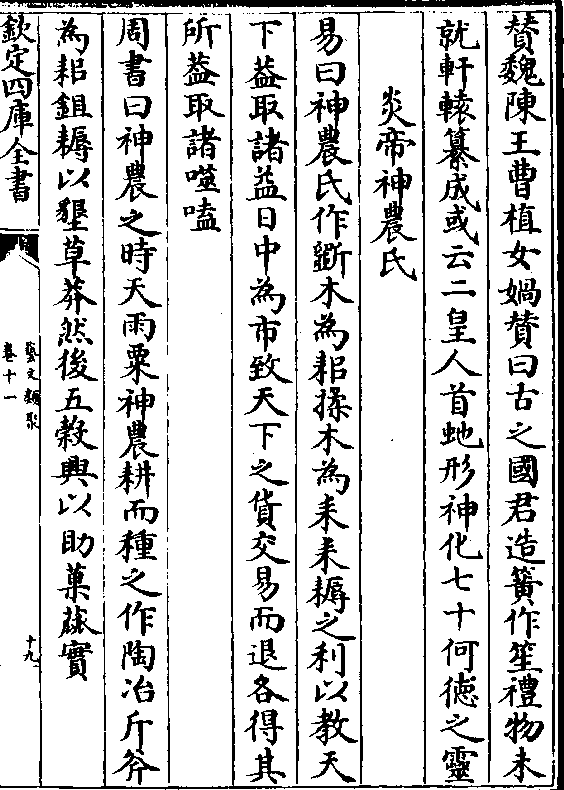 賛魏陳王曹植女媧賛曰古之國君造簧作笙禮物未
就軒轅纂成或云二皇人首虵形神化七十何徳之靈
炎帝神農氏
易曰神農氏作斵木為耜揉木為耒耒耨之利以教天
下葢取諸益日中為市致天下之貨交易而退各得其
所葢取諸噬嗑
周書曰神農之時天雨粟神農耕而種之作陶冶斤斧
為耜鉏耨以墾草莽然後五榖興以助菓蓏實
欽定四庫全書
藝文類聚
卷十一
十九